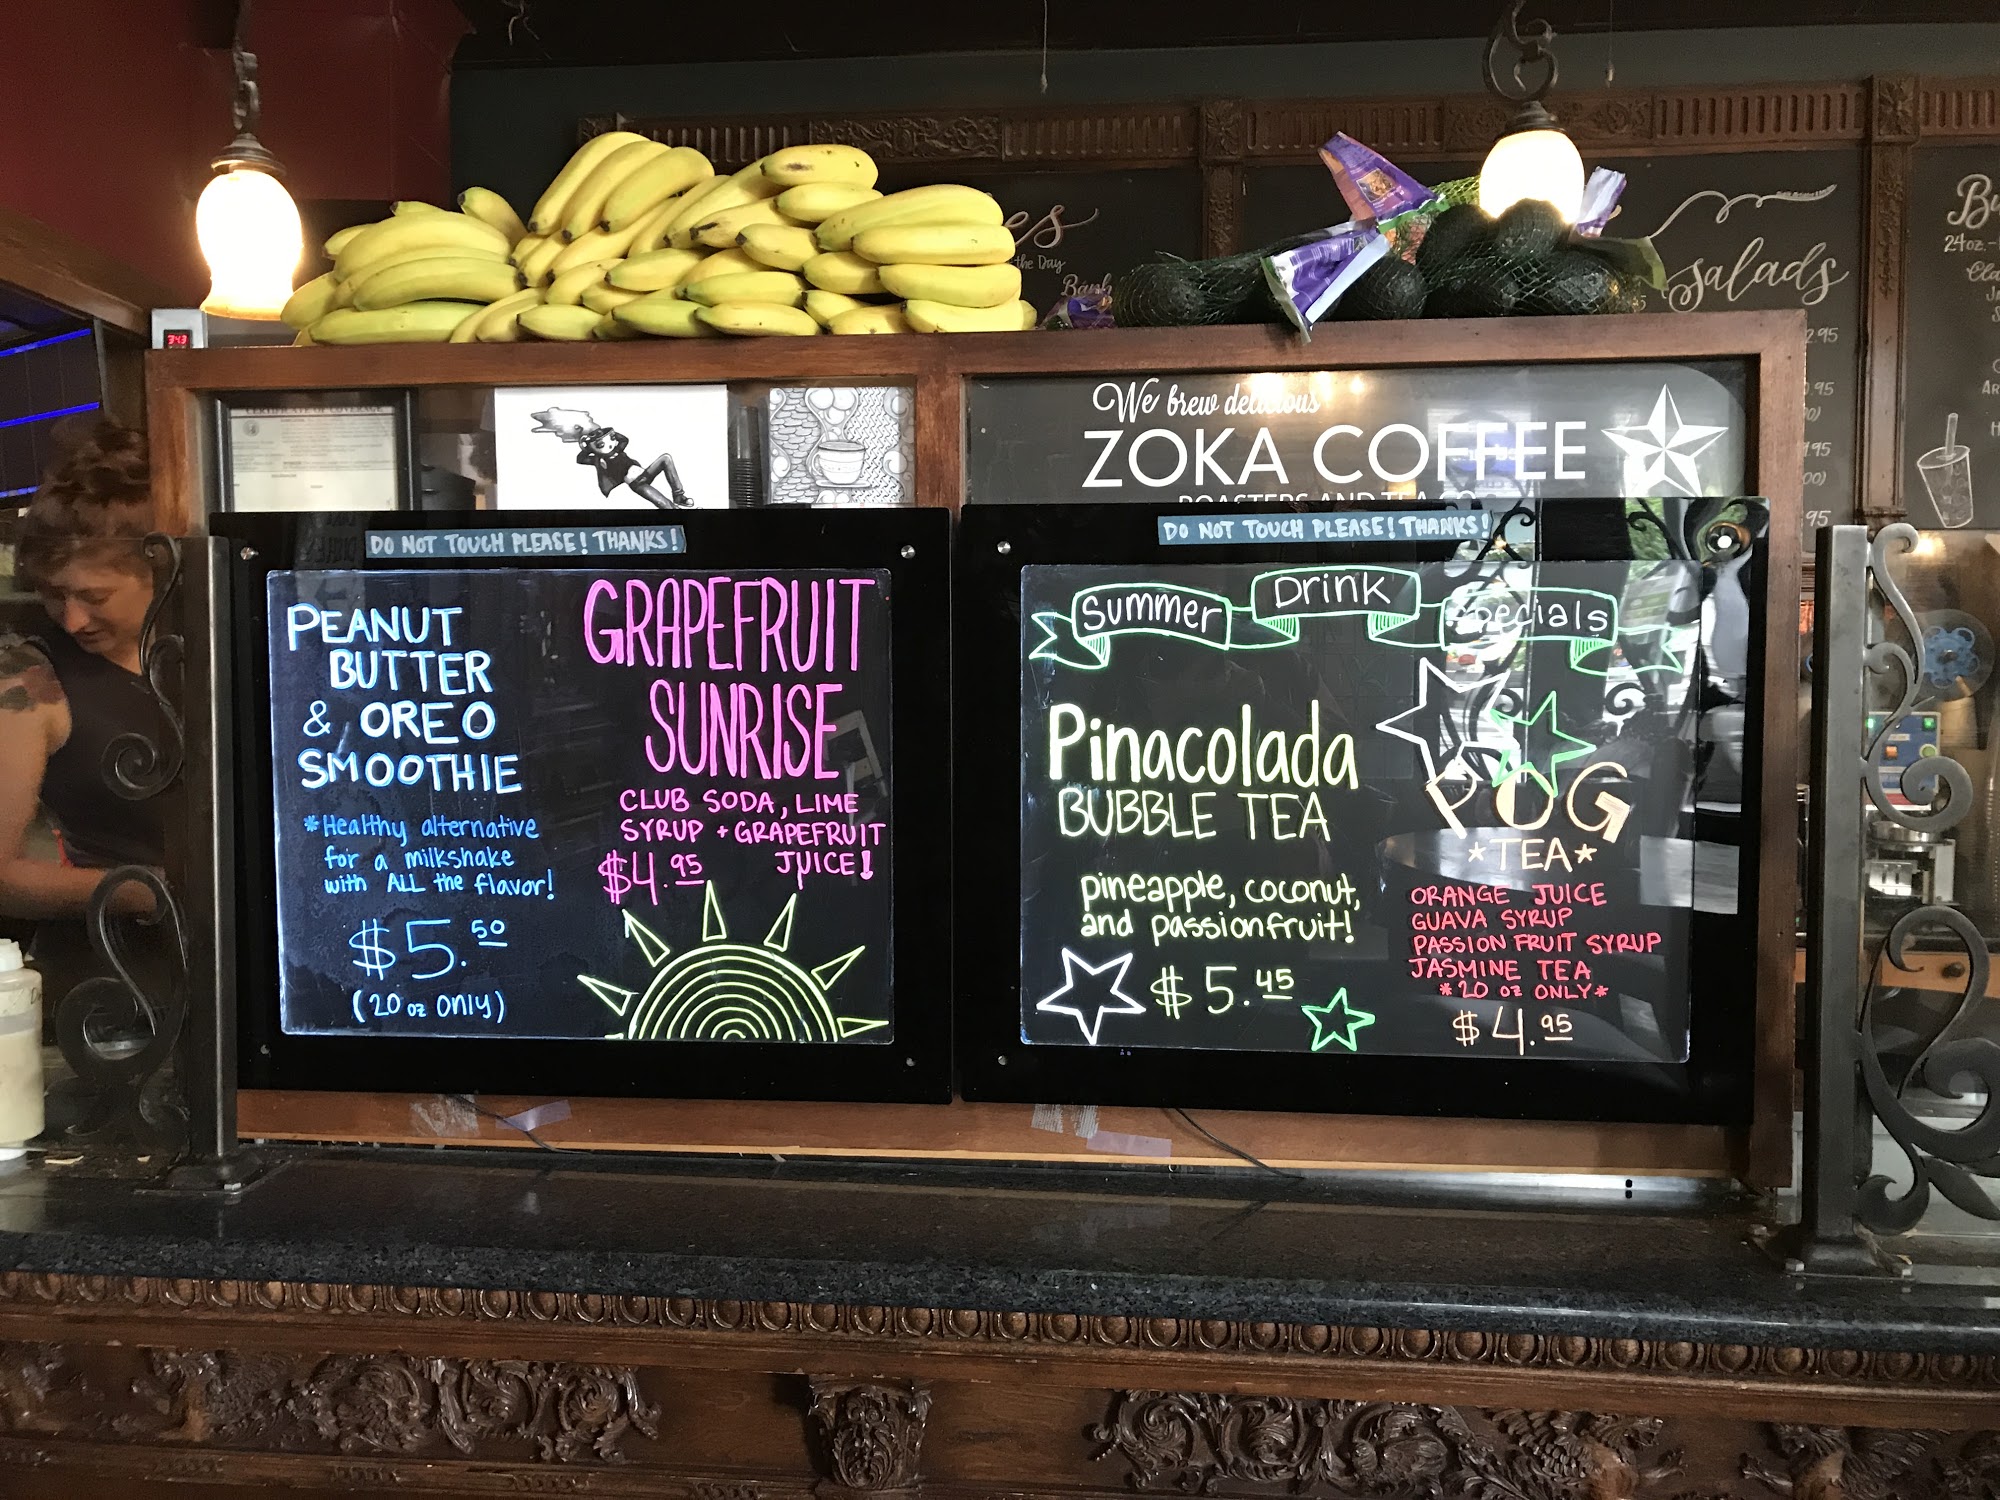 We brew delicious
ZOKA COFFEE
ROASTERS AND TEA CO
DO NOT TOUCH PLEASE! THANKS!
PEANUT
BUTTER
& OREO
SMOOTHIE
*Healthy alternative
for a milkshake
with ALL the flavor!
$5.50
(20 oz only)
GRAPEFRUIT
SUNRISE
CLUB SODA, LIME
SYRUP + GRAPEFRUIT
JUICE!
$4.95
DO NOT TOUCH PLEASE! THANKS!
Summer Drink Specials
Pinacolada
BUBBLE TEA
pineapple, coconut,
and passionfruit!
$5.45
POG
*TEA*
ORANGE JUICE
GUAVA SYRUP
PASSION FRUIT SYRUP
JASMINE TEA
*20 oz ONLY*
$4.95
the Day
Salads
24oz.
343
CERTIFICATE OF COVERAGE